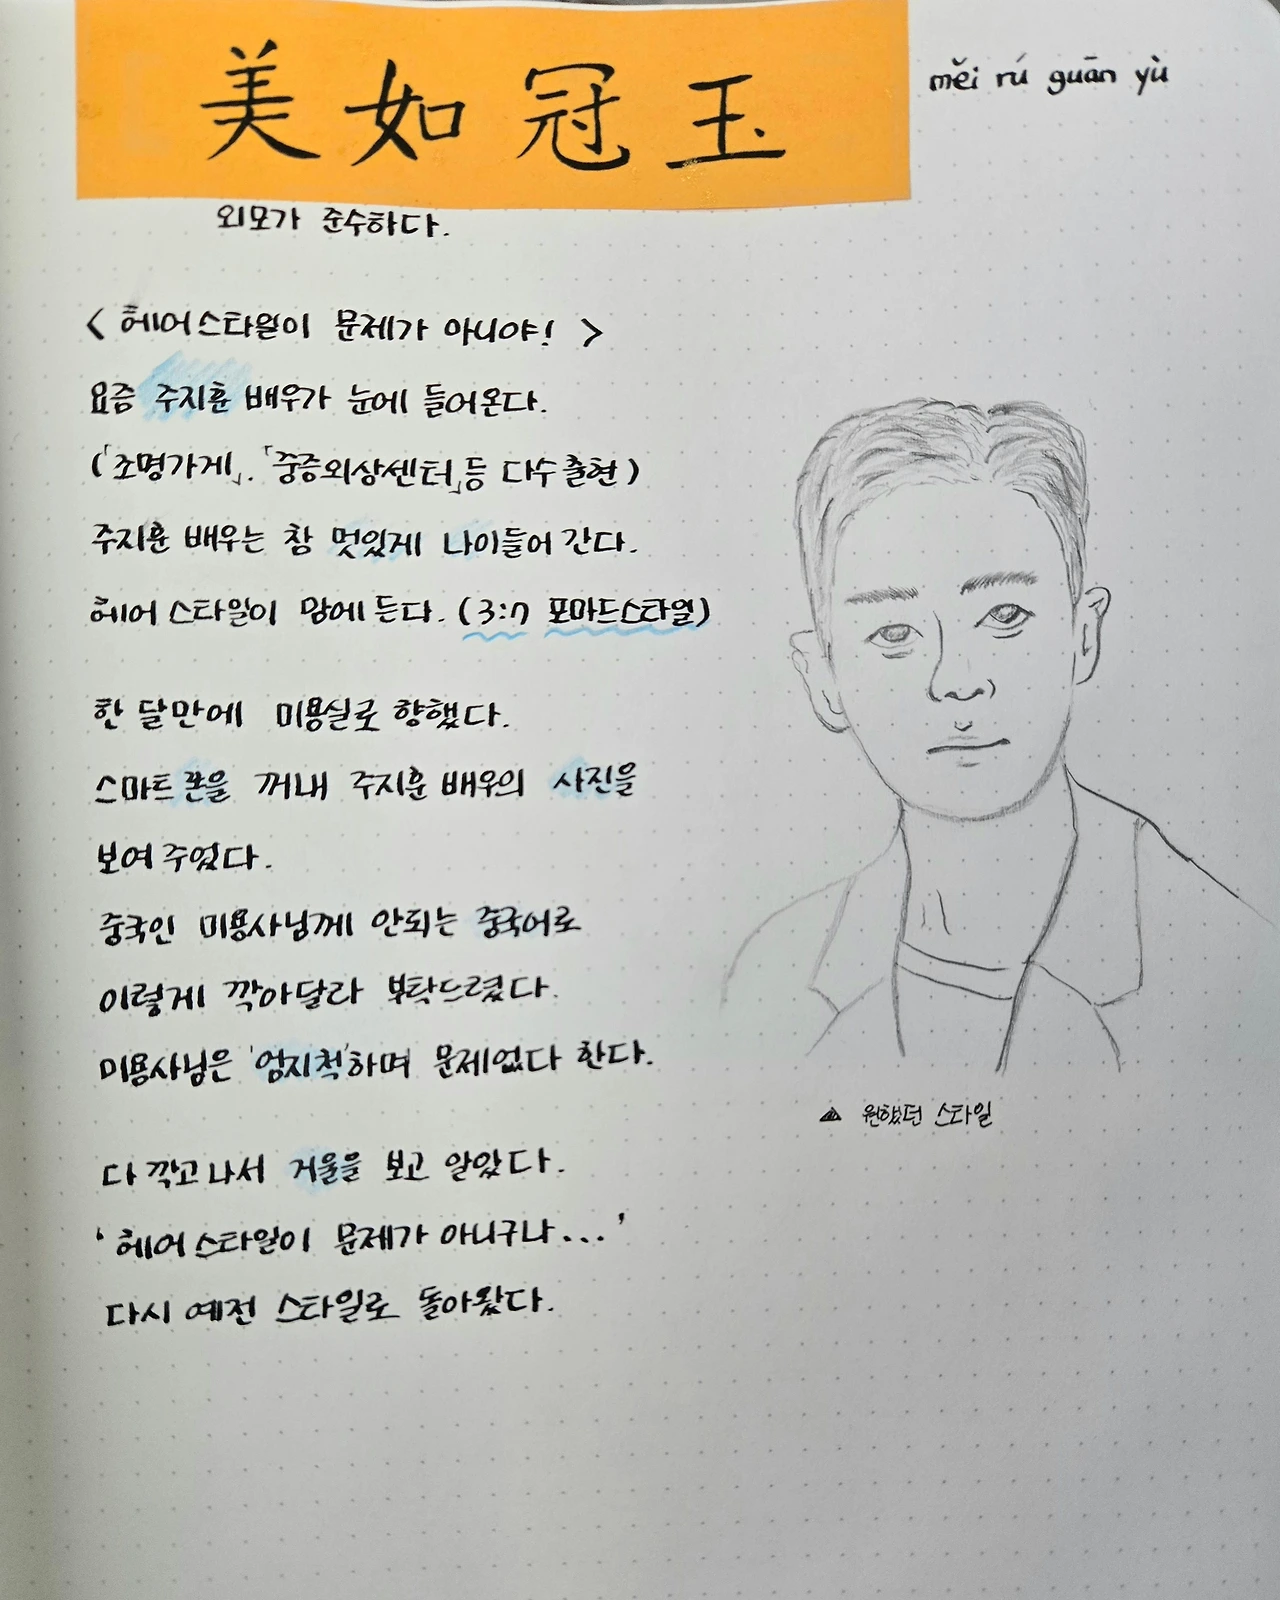 美如冠玉
měi rú guān yù
외모가 준수하다.
< 헤어스타일이 문제가 아니야! >
요즘 주지훈 배우가 눈에 들어온다.
(「조명가게」.「중증외상센터」등 다수 출현)
주지훈 배우는 참 멋있게 나이들어 간다.
헤어 스타일이 맘에 든다. (3:7 포마드스타일)
한 달만에 미용실로 향했다.
스마트폰을 꺼내 주지훈 배우의 사진을
보여 주었다.
중국인 미용사님께 안되는 중국어로
이렇게 깍아달라 부탁드렸다.
미용사님은 '엄지척'하며 문제없다 한다.
다 깍고 나서 거울을 보고 알았다.
'헤어 스타일이 문제가 아니구나...'
다시 예전 스타일로 돌아왔다.
▲ 원했던 스타일